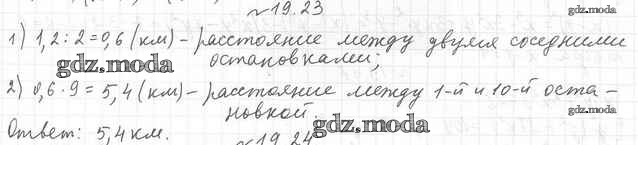 №19.23
gdz.moda
1) 1,2 : 2 = 0,6 (км) - расстояние между двумя соседними
gdz.moda
остановками;
2) 0,6 · 9 = 5,4 (км) - расстояние между 1-й и 10-й оста -
новкой.
gdz.moda
gdz.moda
Ответ: 5,4 км.
№19.24